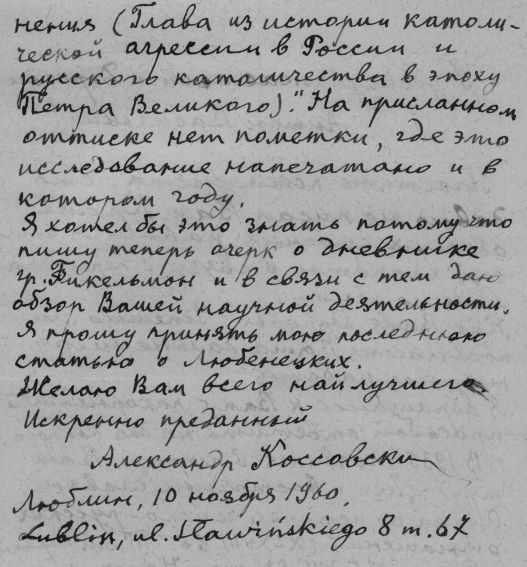 нения (Глава из истории католи-
ческой агрессии в России и
русского католичества в эпоху
Петра Великого)." На присланном
оттиске нет пометки, где это
исследование напечатано и в
котором году.
Я хотел бы это знать потому что
пишу теперь очерк о дневнике
гр. Фикельмон и в связи с тем даю
обзор Вашей научной деятельности.
Я прошу принять мою последнюю
статью о Любенецких.
Желаю Вам всего найлучшего
Искренно преданный
Александр Коссовски
Люблин, 10 ноября 1960,
Lublin, ul. Sławińskiego 8 m. 67